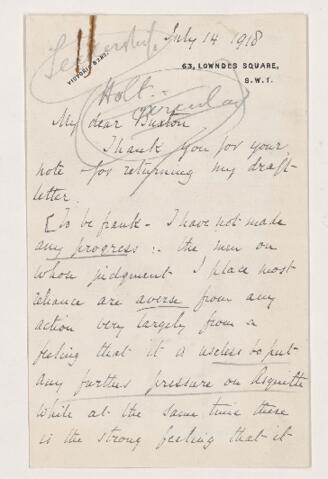 July 14 1918
VICTORIA 2087.
63, LOWNDES SQUARE,
S.W.1.
Holt
Circular
My dear Buxton
Thank you for your
note - for returning my draft-
letter.
[To be frank - I have not made
any progress :- the men on
whose judgment I place most
reliance are averse from any
action very largely from a
feeling that it is useless to put
any further pressure on Asquith
while at the same time there
is the strong feeling that it